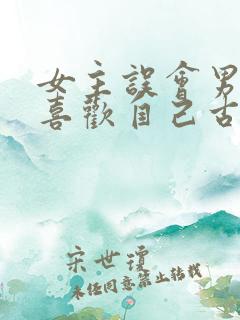 女主誤會男
喜歡自己古
宋世瓊
未經同意禁止轉載